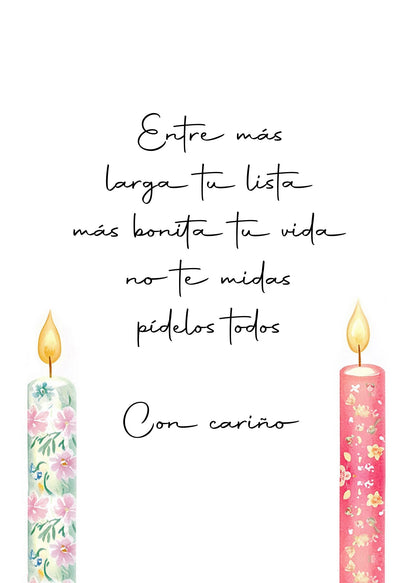 Entre más
larga tu lista
más bonita tu vida
no te midas
pídelos todos
Con cariño